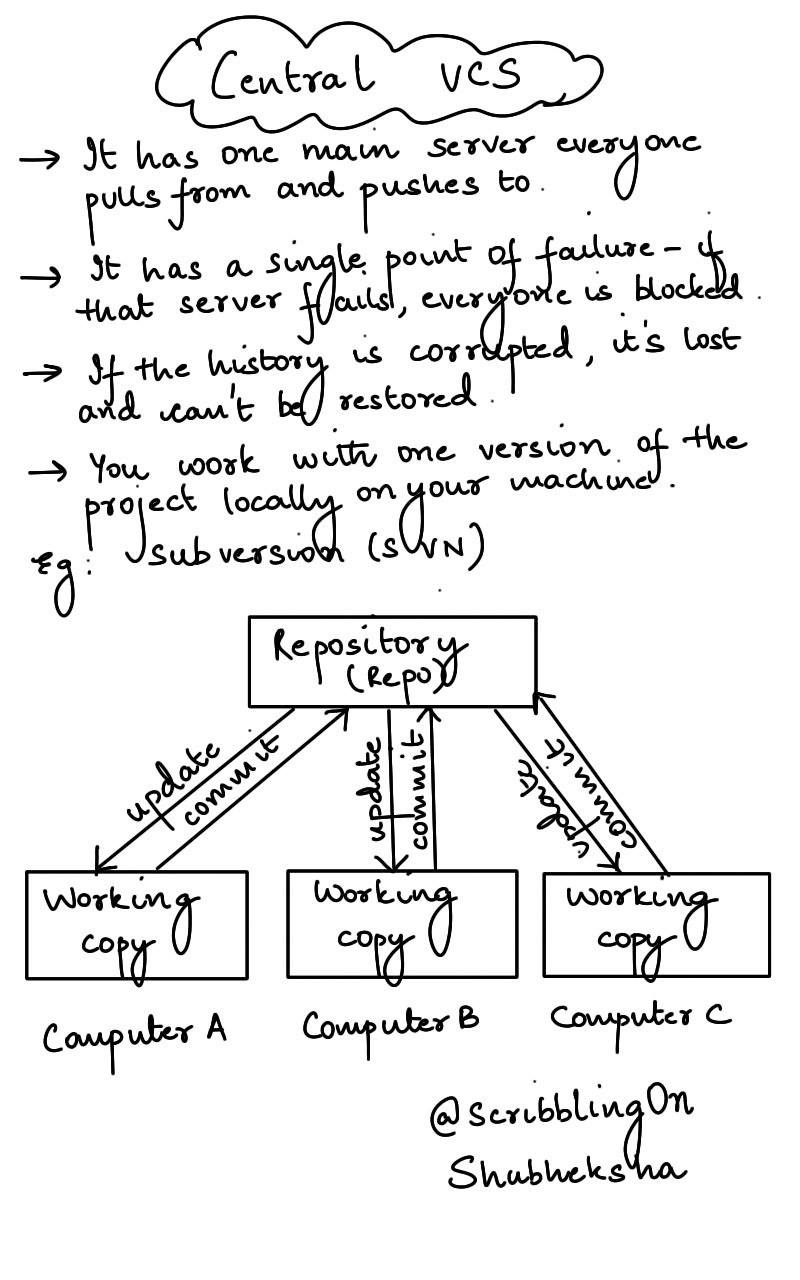 Central VCS
→ It has one main server everyone
pulls from and pushes to.
→ It has a single point of failure - if
that server fails, everyone is blocked.
→ If the history is corrupted, it's lost
and can't be restored.
→ You work with one version of the
project locally on your machine.
Eg: Subversion (SVN)
Repository
(Repo)
update
commit
update
commit
update
commit
Working
copy
Working
copy
Working
copy
Computer A
Computer B
Computer C
@ScribblingOn
Shubheksha